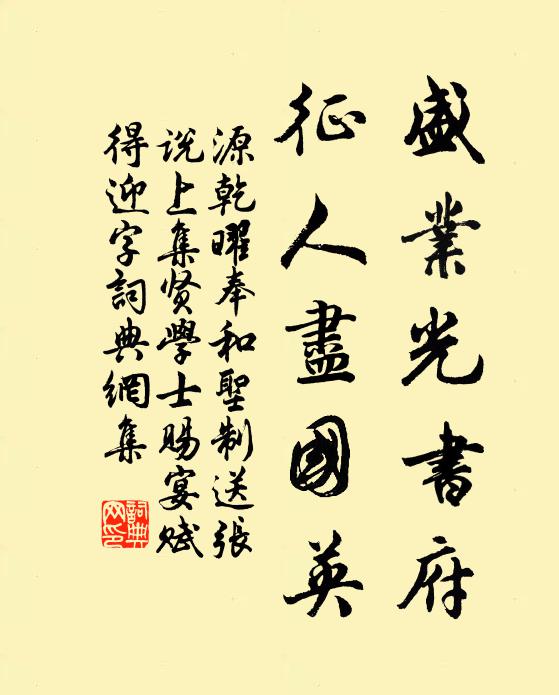 盛業光書府
征人盡國英
源乾曜奉和聖制送張
说上集贤學士賜宴赋
得迎字詞典網集
詞典
网印